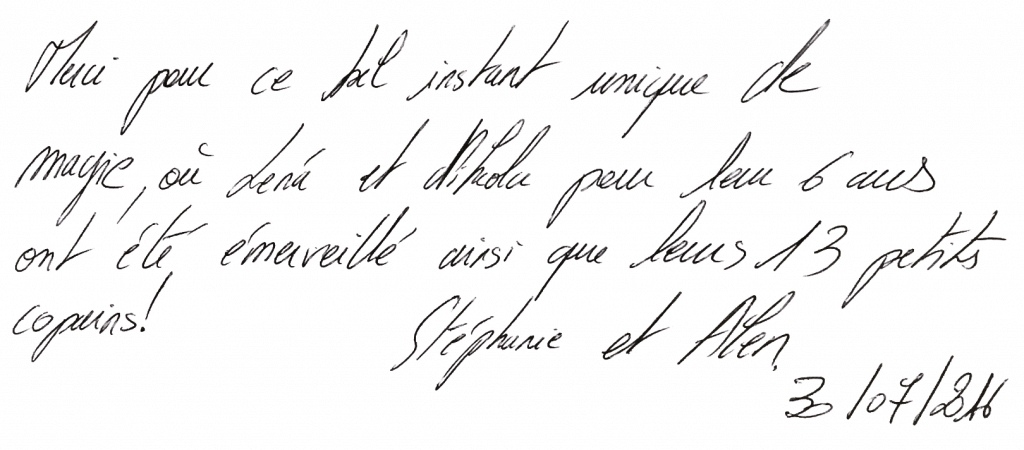 Merci pour ce bel instant unique de
magie, où Léna et Nikola pour leur 6 ans
ont été émerveillé ainsi que leurs 13 petits
copains!
Stéphanie et Alen.
30/07/2016